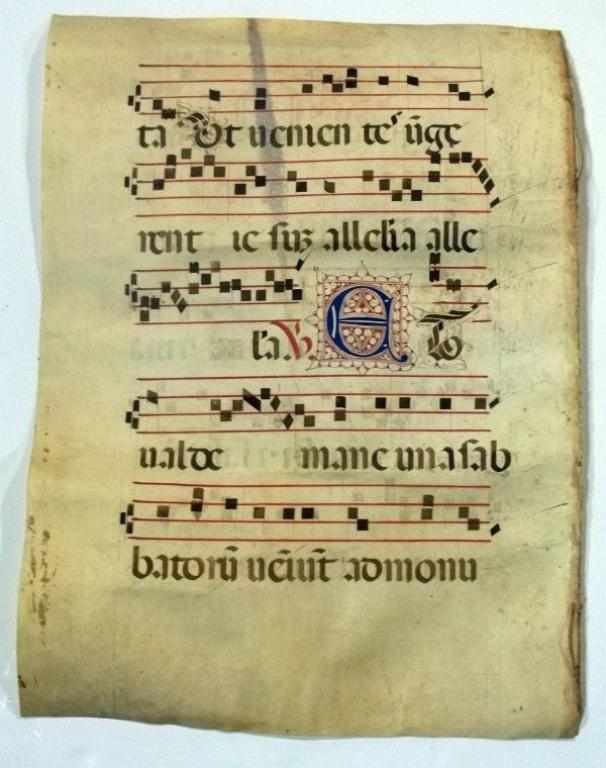 ta Ut uenien tes ūge
rent ie suz allelia alle
la. V. Et
ualde mane una sab
batorū uēiūt admonu